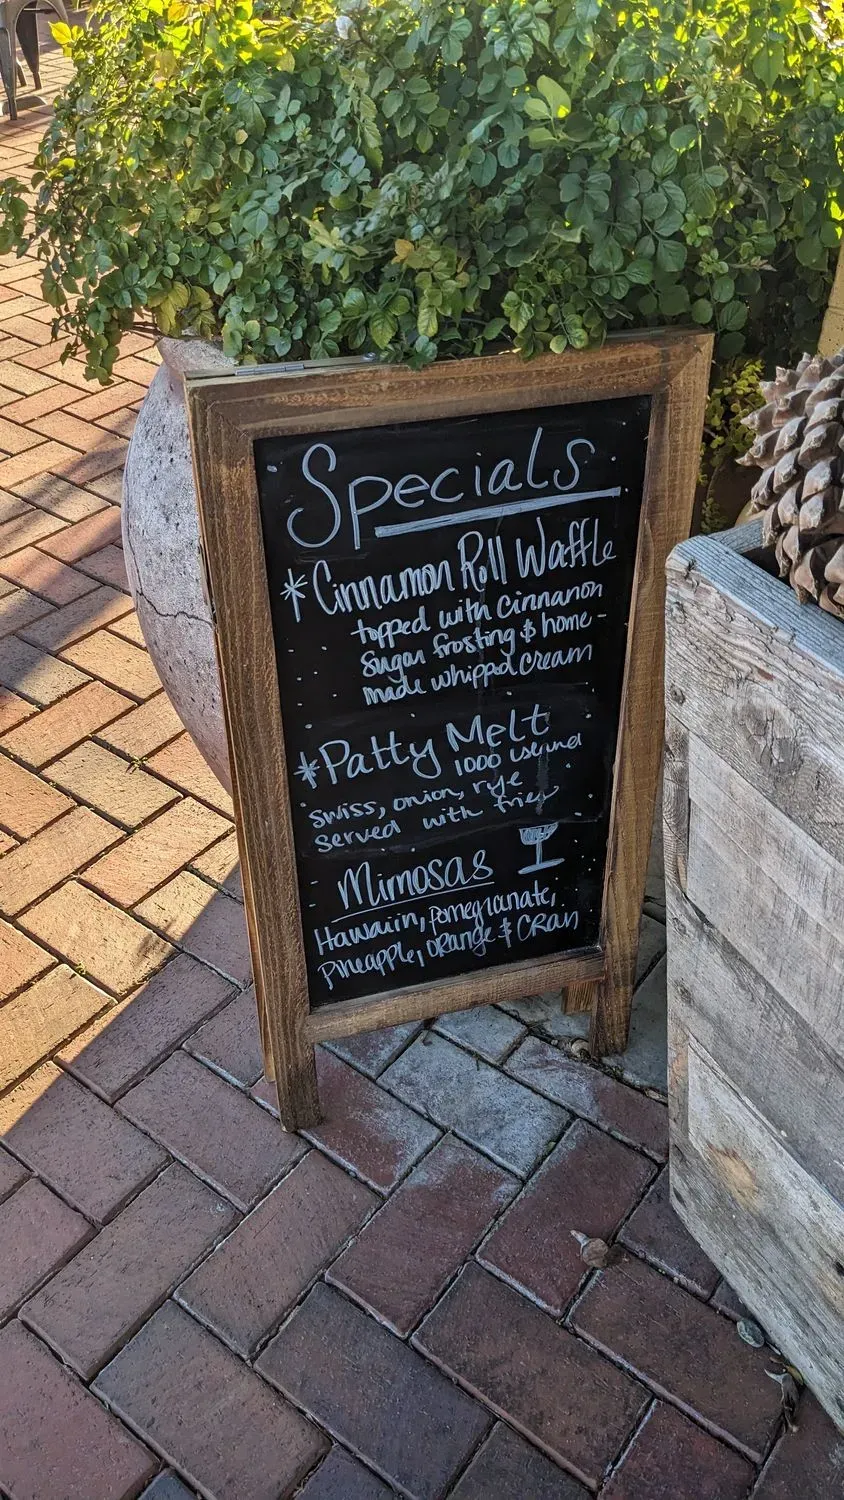 Specials
* Cinnamon Roll Waffle
topped with cinnamon
sugar frosting & home-
made whipped cream
* Patty Melt
1000 island
swiss, onion, rye
served with fries
Mimosas
Hawaiin, pomegranate,
Pineapple, orange & Cran